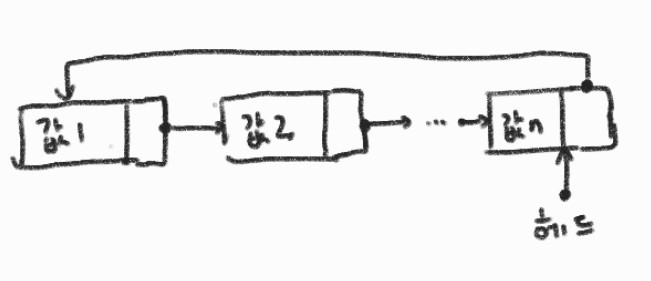 값1 값2 ... 값n
헤드